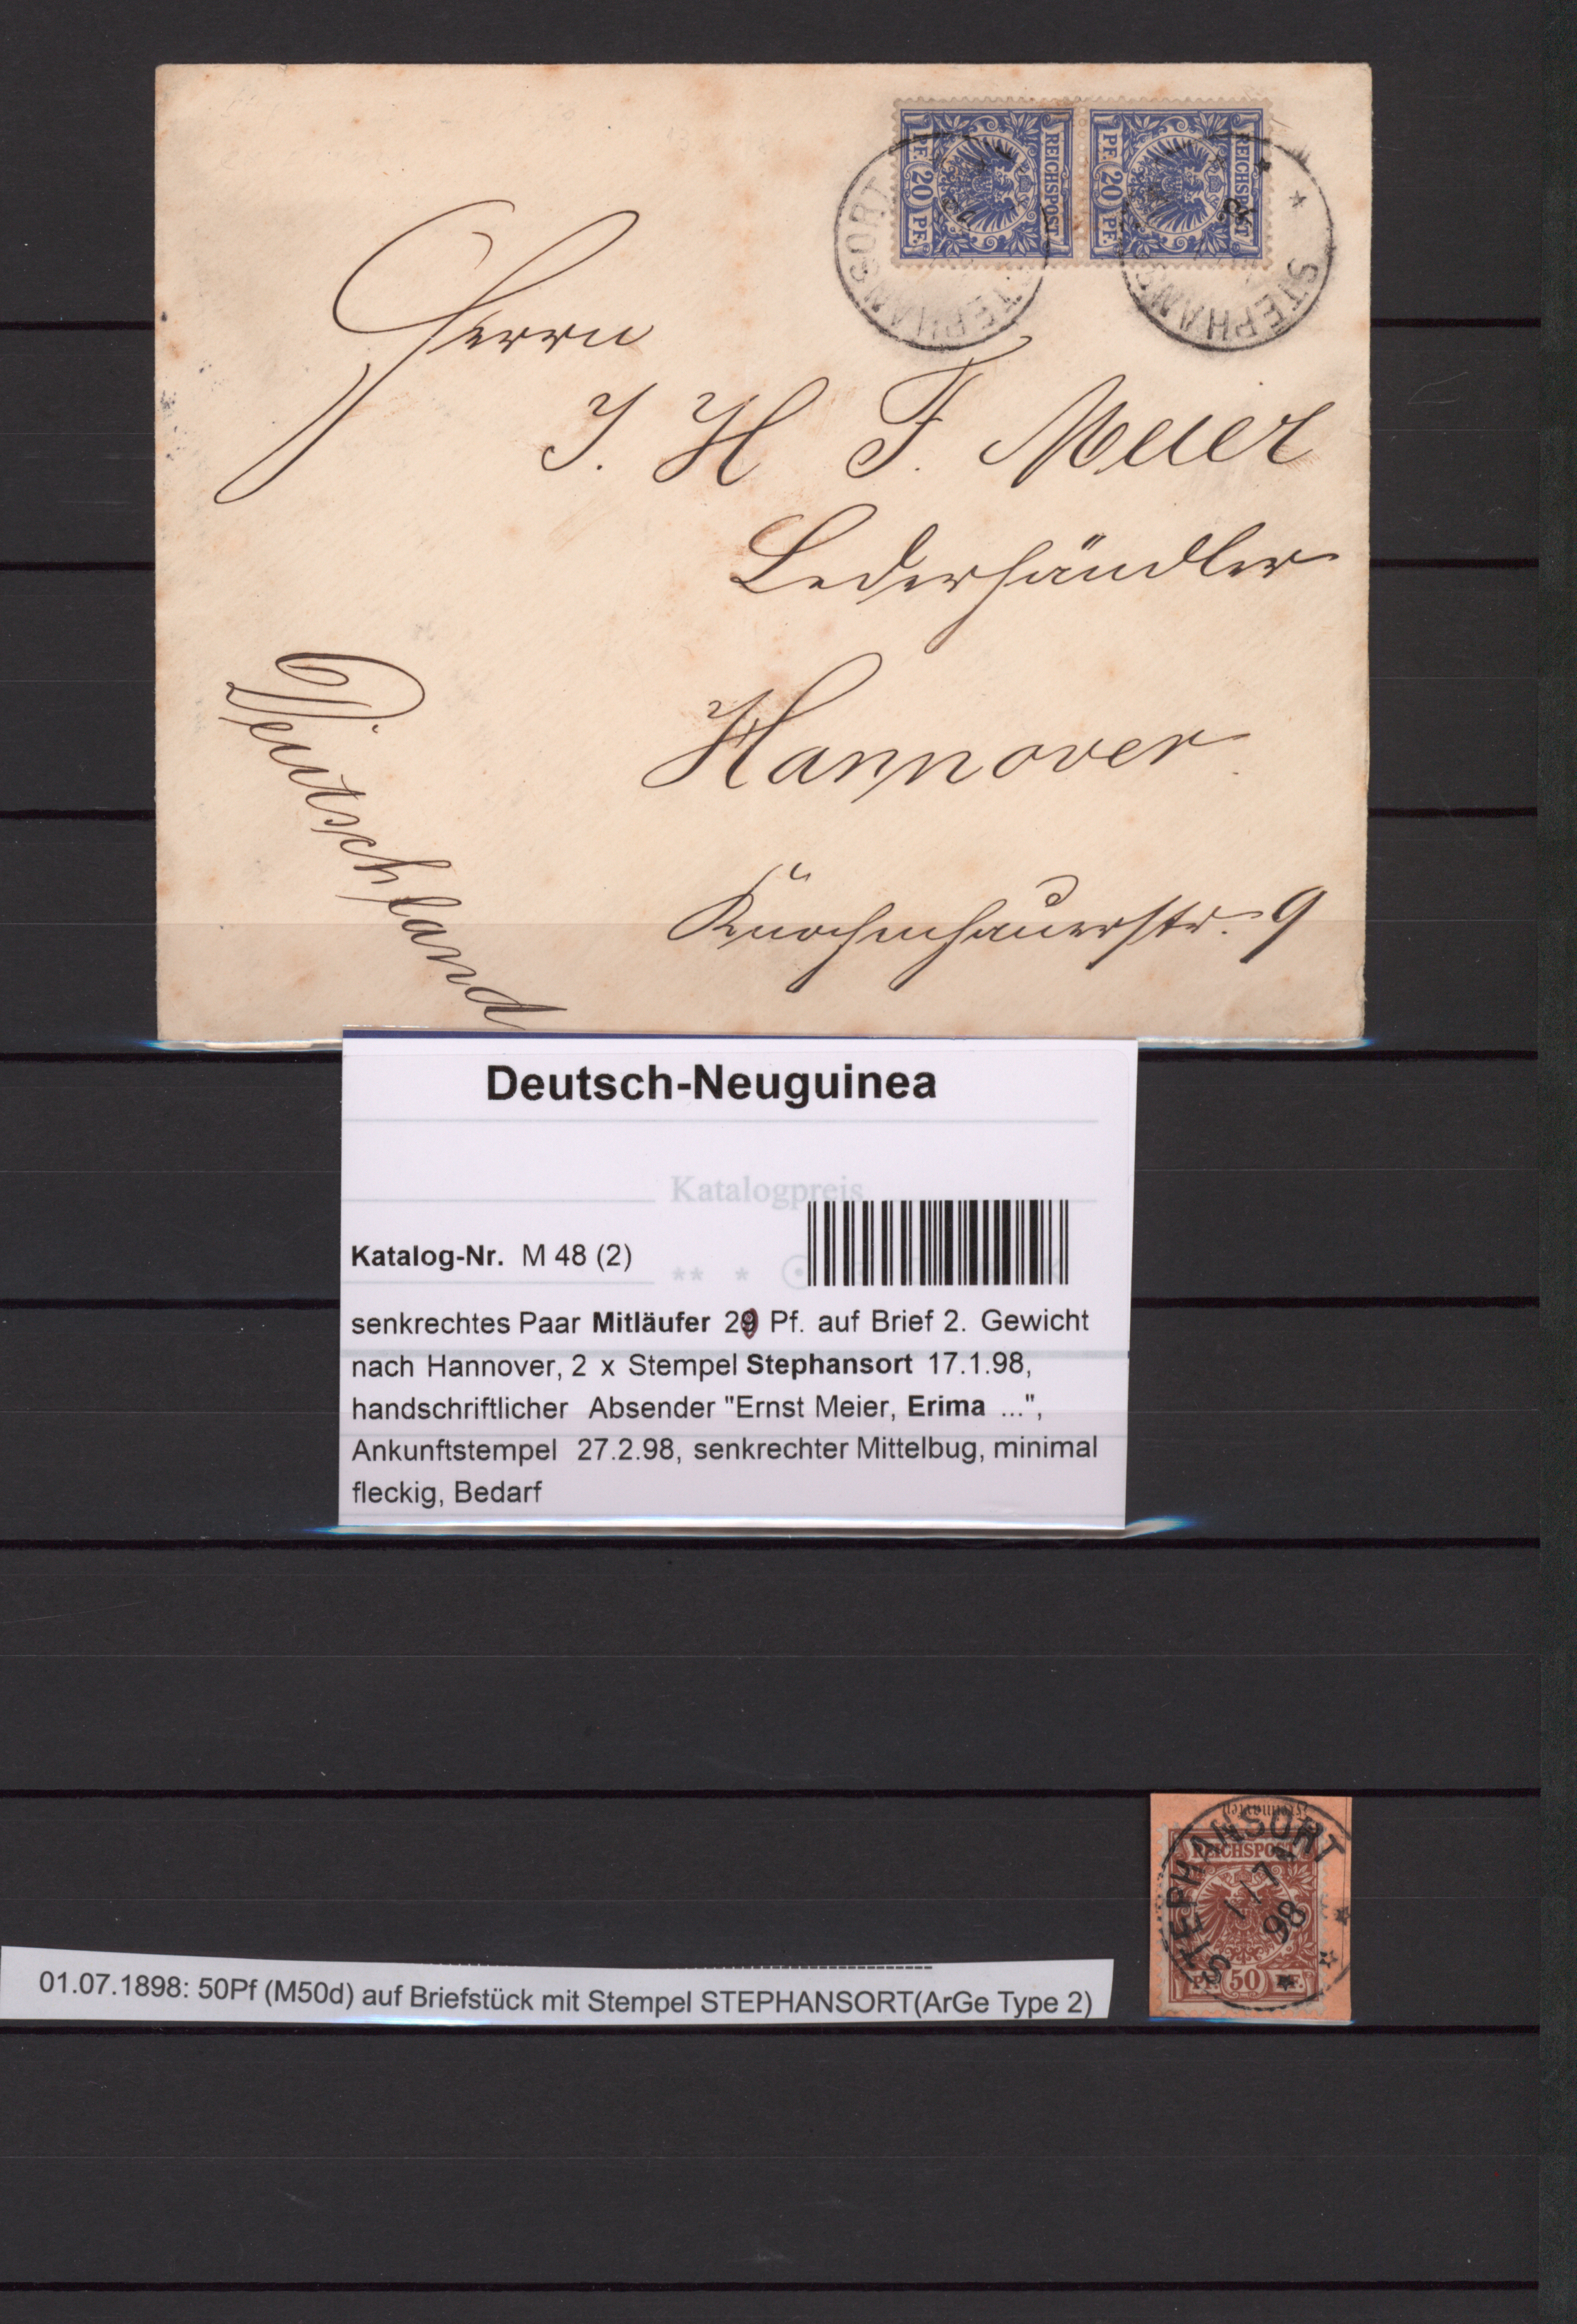 REICHSPOST REICHSPOST
PF. 20 PF. PF. 20 PF.
STEPHANSORT STEPHANSORT
Herrn
J. H. F. Meier
Lederhändler
Hannover.
Knochenhauerstr. 9
Deutschland
Deutsch-Neuguinea
Katalogpreis
Katalog-Nr. M 48 (2)
** * ⊙
senkrechtes Paar Mitläufer 20 Pf. auf Brief 2. Gewicht
nach Hannover, 2 x Stempel Stephansort 17.1.98,
handschriftlicher Absender "Ernst Meier, Erima ...",
Ankunftstempel 27.2.98, senkrechter Mittelbug, minimal
fleckig, Bedarf
STEPHANSORT
REICHSPOST
1/7
98
PF. 50 PF.
01.07.1898: 50Pf (M50d) auf Briefstück mit Stempel STEPHANSORT(ArGe Type 2)